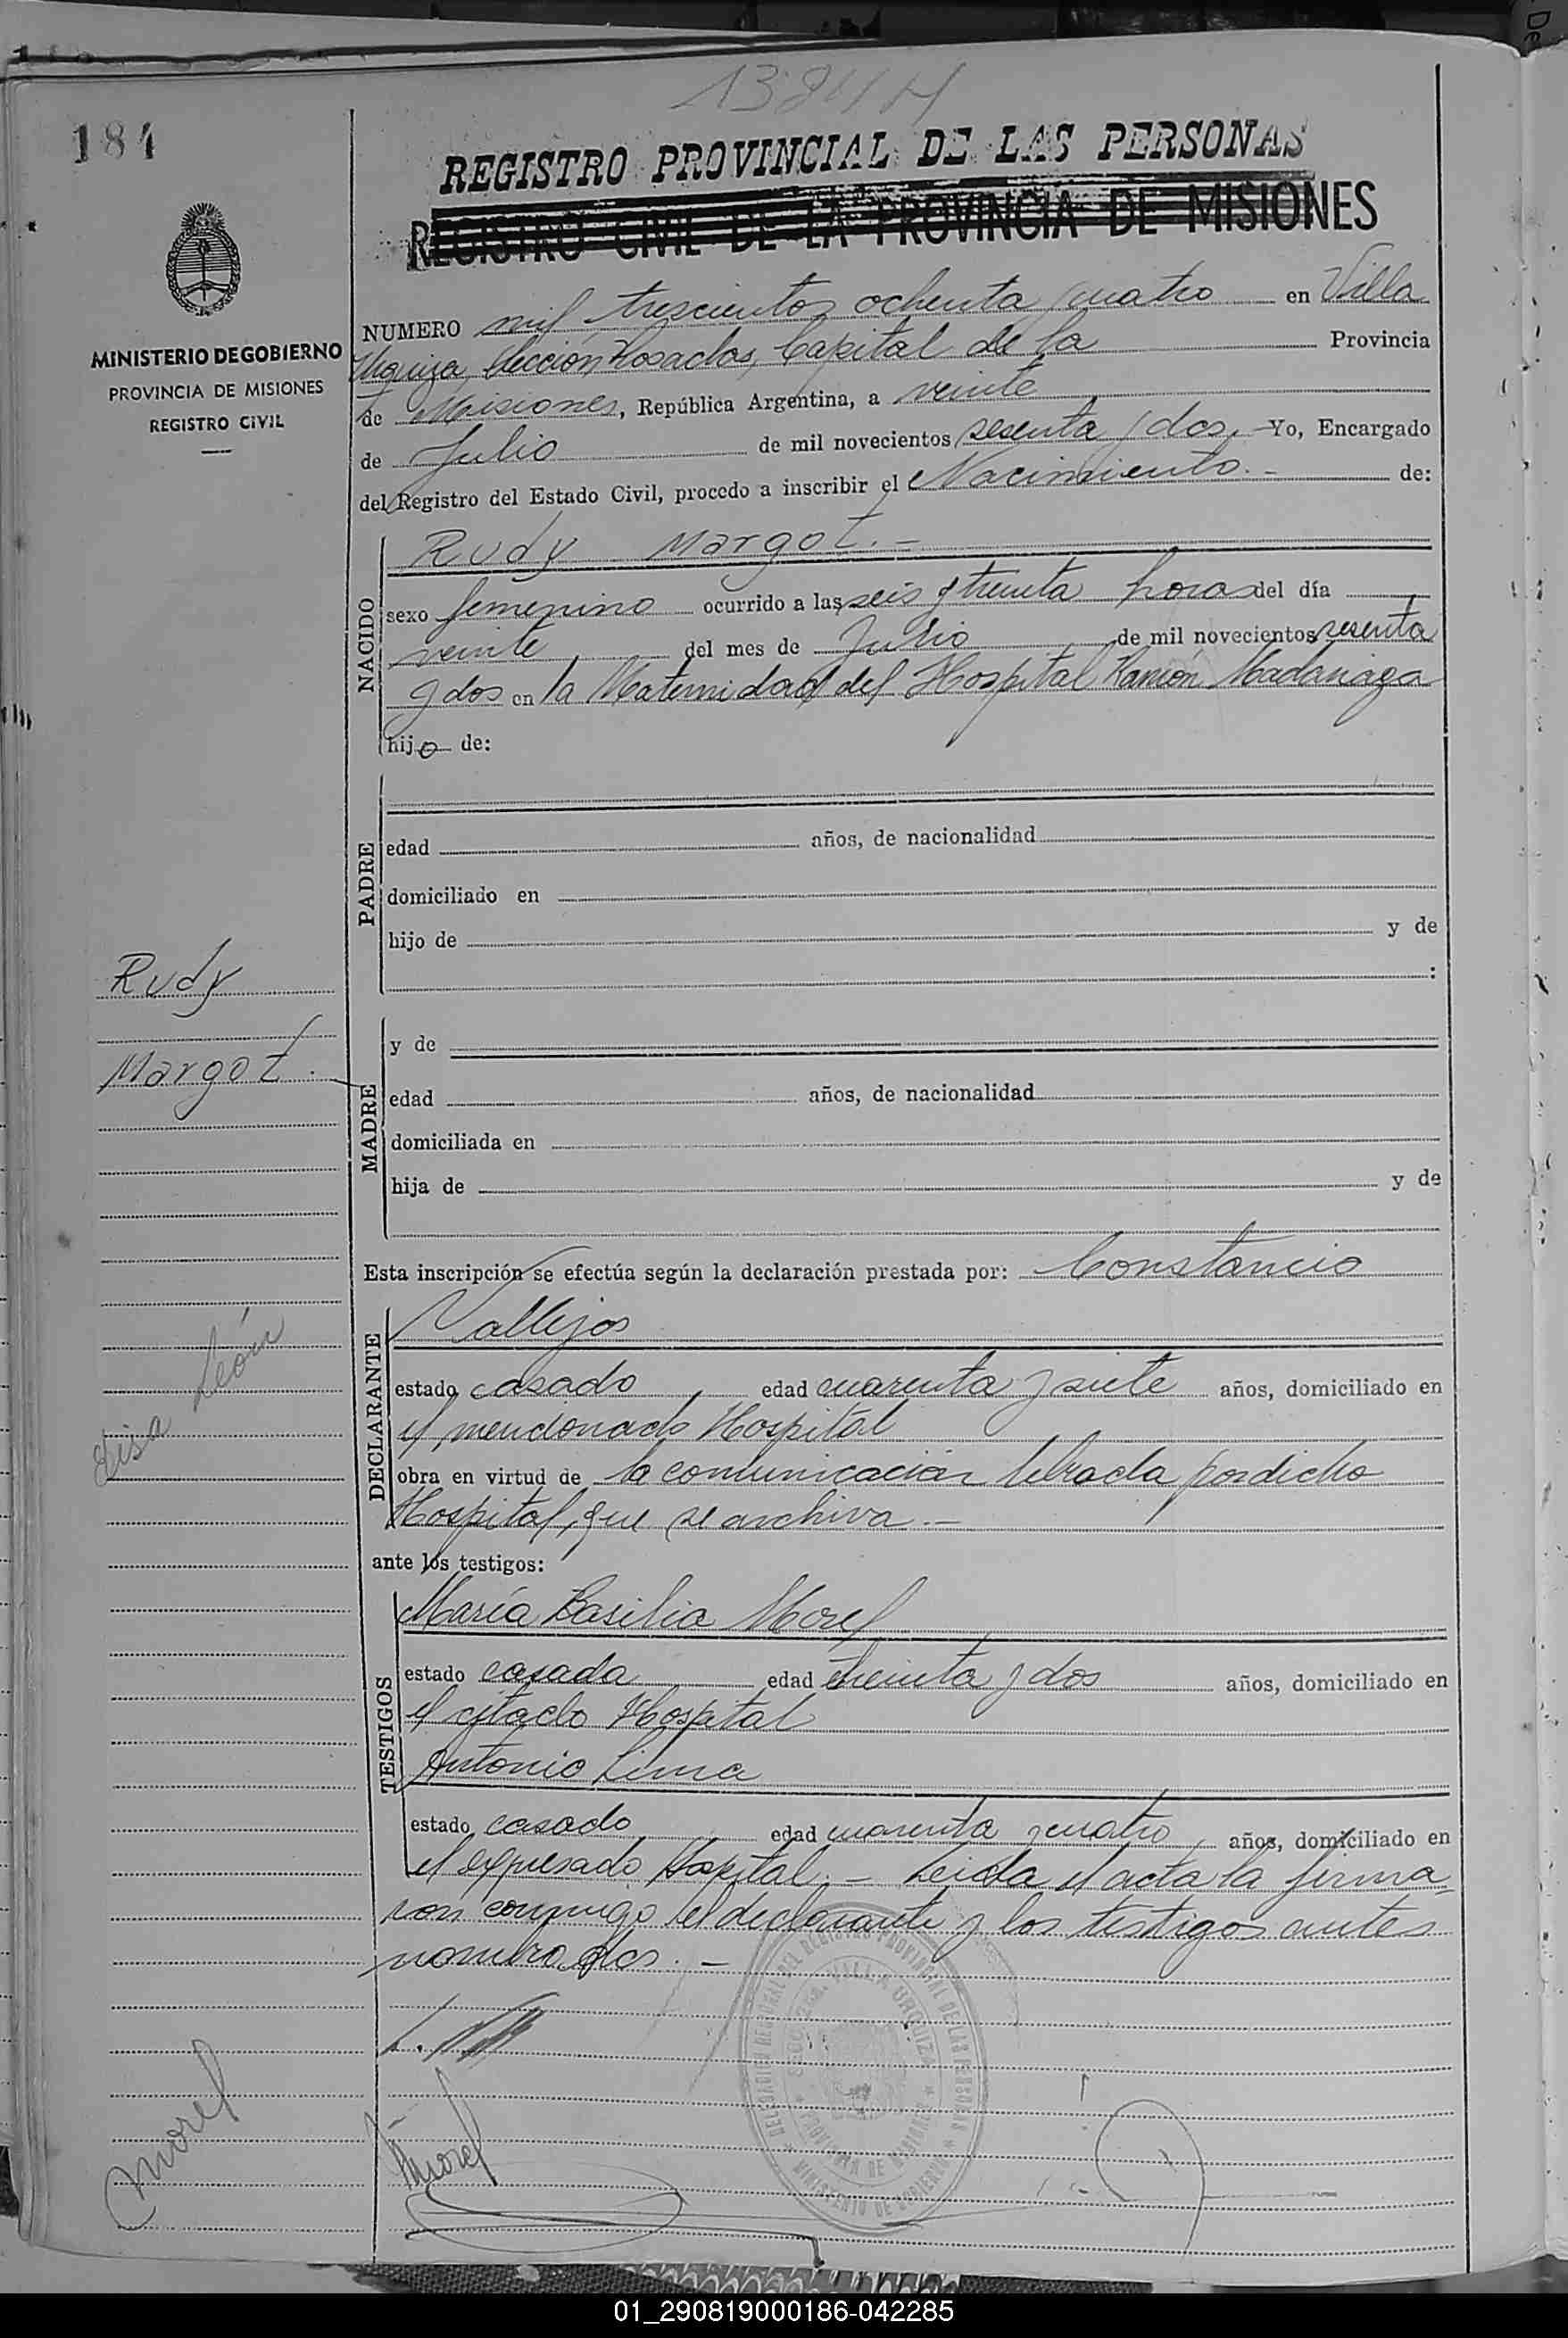 1384 M
184
REGISTRO PROVINCIAL DE LAS PERSONAS
REGISTRO CIVIL DE LA PROVINCIA DE MISIONES
MINISTERIO DE GOBIERNO
PROVINCIA DE MISIONES
REGISTRO CIVIL
NUMERO mil trescientos ochenta y cuatro en Villa
Urquiza, Sección Posadas, Capital de la Provincia
de Misiones, República Argentina, a veinte
de Julio de mil novecientos sesenta y dos.- Yo, Encargado
del Registro del Estado Civil, procedo a inscribir el Nacimiento.- de:
NACIDO
Rudy Margot.-
sexo femenino ocurrido a las seis y treinta horas del día
veinte del mes de Julio de mil novecientos sesenta
y dos en la Maternidad del Hospital Ramón Madariaga
hijo de:
PADRE
edad años, de nacionalidad
domiciliado en
hijo de y de
:
Rudy
Margot.-
MADRE
y de
edad años, de nacionalidad
domiciliada en
hija de y de
Esta inscripción se efectúa según la declaración prestada por: Constancio
DECLARANTE
Vallejos
estado casado, edad cuarenta y siete años, domiciliado en
el mencionado Hospital
obra en virtud de la comunicación librada por dicho
Hospital, que se archiva.-
León
ante los testigos:
TESTIGOS
María Basilia Morel
estado casada edad treinta y dos años, domiciliado en
el citado Hospital
Antonio Lima
estado casado edad cuarenta y cuatro años, domiciliado en
el expresado Hospital.- Leida el acta la firma
ron conmigo el declarante y los testigos antes
nombrados.-
DELEGACION REGIONAL DEL REGISTRO PROVINCIAL DE LAS PERSONAS
VILLA URQUIZA
PROVINCIA DE MISIONES
MINISTERIO DE GOBIERNO
Morel
Morel
01_290819000186-042285